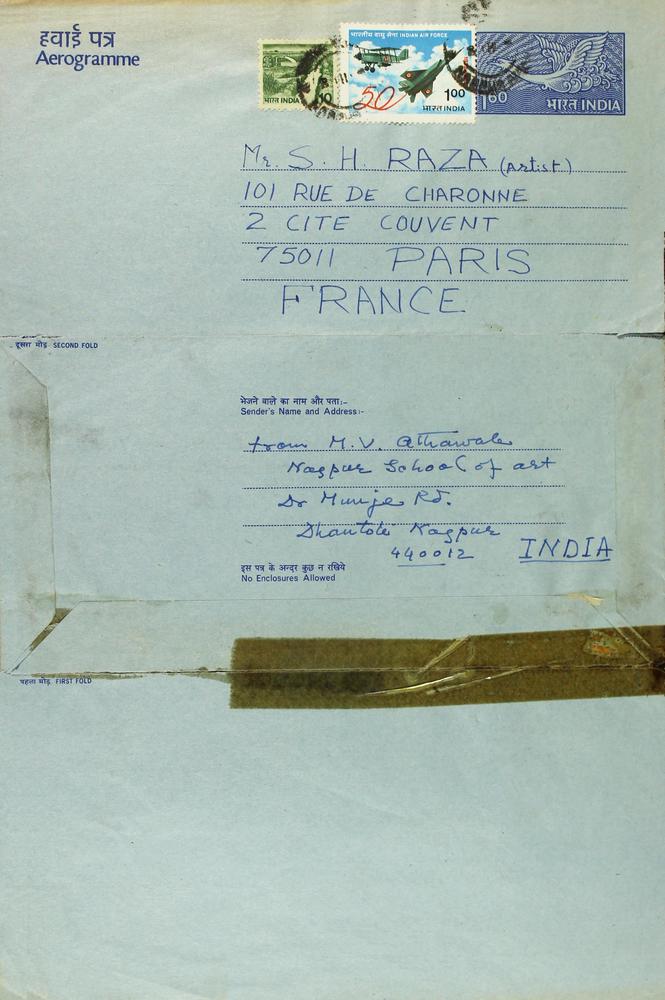 हवाई पत्र
Aerogramme
भारत INDIA
भारतीय वायु सेना INDIAN AIR FORCE
50
1.00
भारत INDIA
160
भारत INDIA
Mr. S. H. RAZA (Artist)
101 RUE DE CHARONNE
2 CITE COUVENT
75011 PARIS
FRANCE
दूसरा मोड़ SECOND FOLD
भेजने वाले का नाम और पता:-
Sender's Name and Address:-
from M.V. Athawale
Nagpur School of art
Dr Munje Rd.
Dhantoli Nagpur
440012 INDIA
इस पत्र के अन्दर कुछ न रखिये
No Enclosures Allowed
पहला मोड़ FIRST FOLD